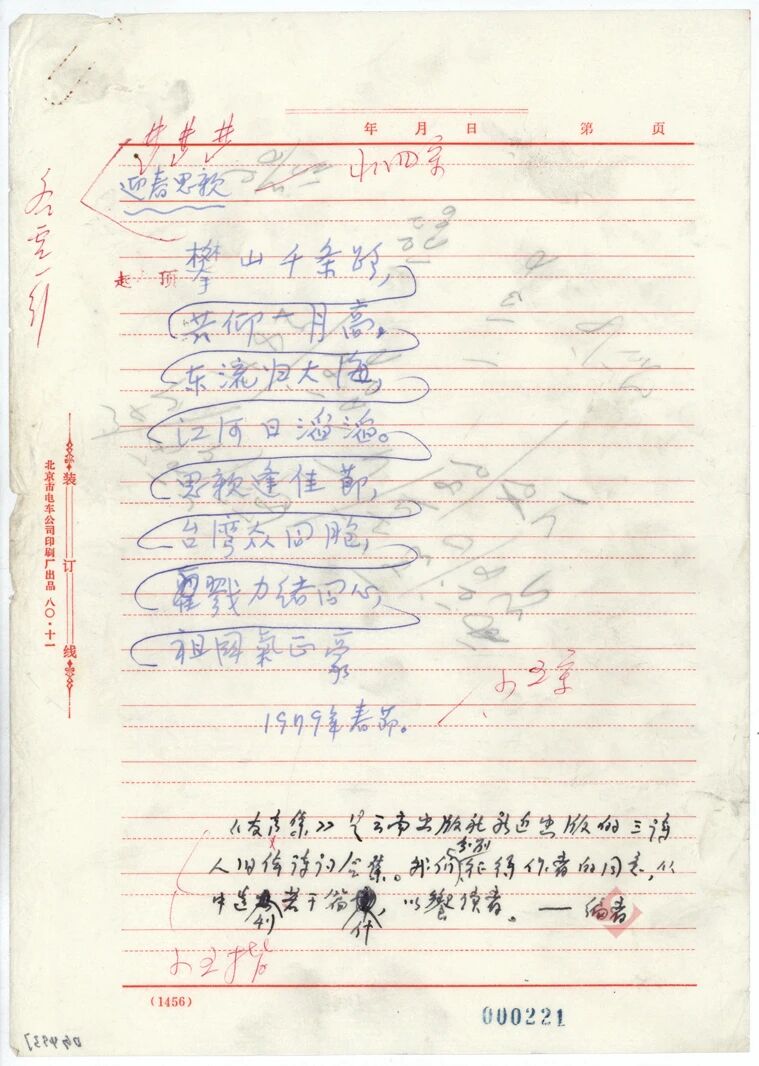 年 月 日 第 页
小四宋
迎春思亲
攀山千条路，
起 顶
共仰大月高。
东流归大海，
江河日滔滔。
思親逢佳節，
台湾众同胞，
戮力绪同心，
祖国氣正豪
1979年春節。
小五宋
装订线
北京市电车公司印刷厂出品 八〇·十一
出版社新近出版的三诗
人旧体诗词合集。我们征得作者的同意，从
中选 若干篇什，以飨读者。——编者
小五楷
(1456)
000221